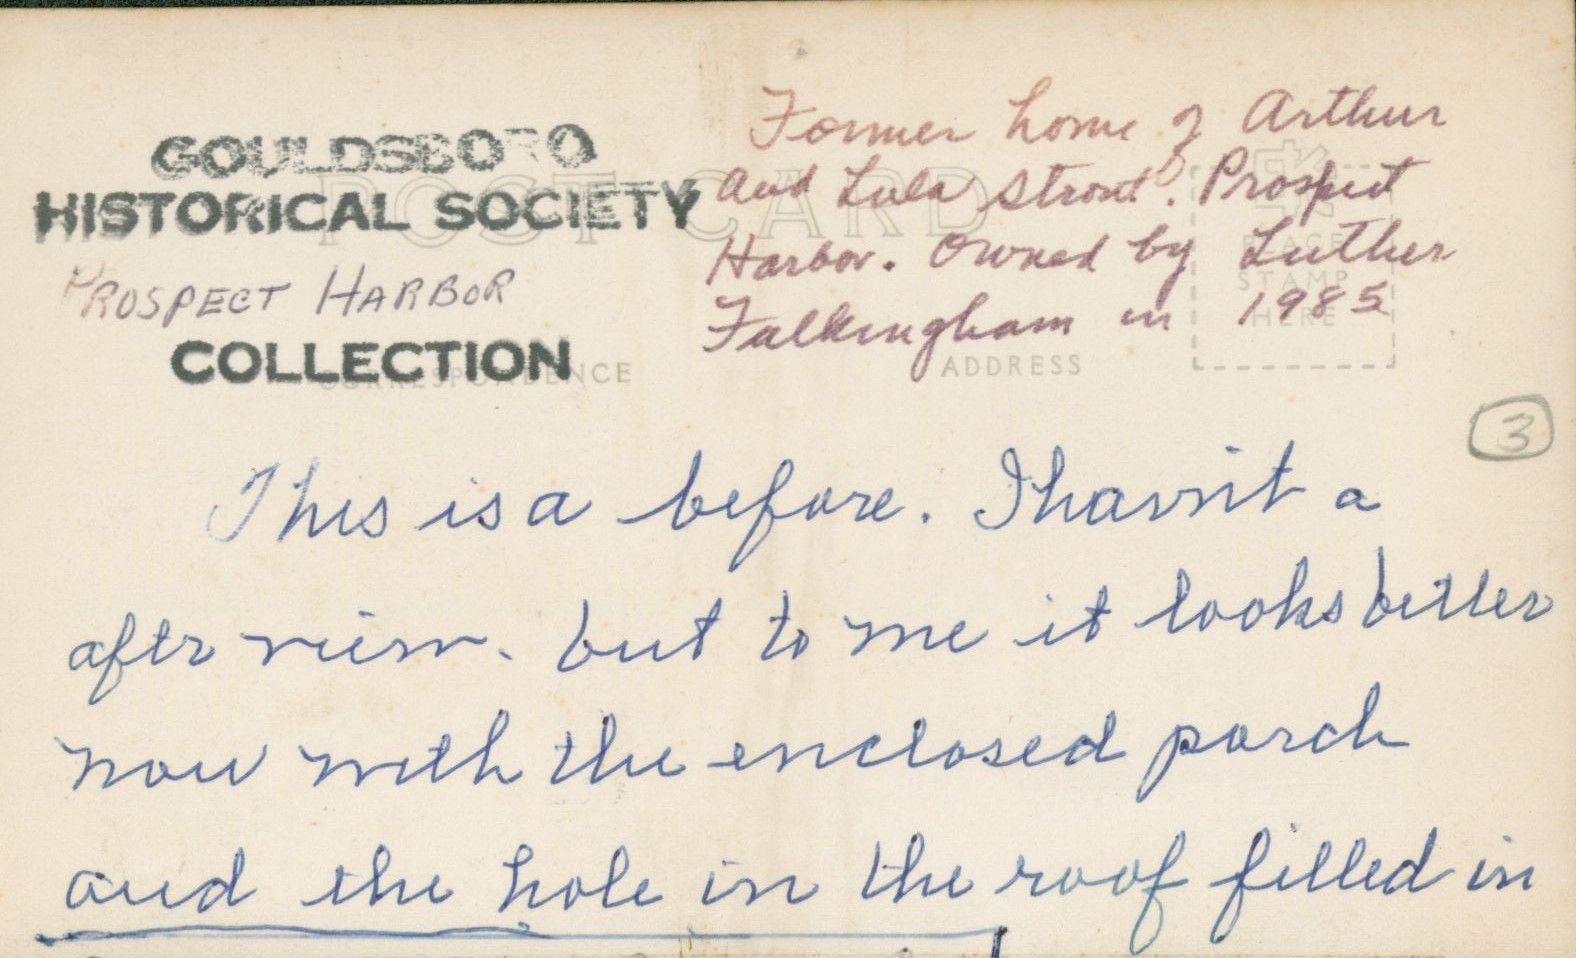 GOULDSBORO
HISTORICAL SOCIETY
PROSPECT HARBOR
COLLECTION
POST CARD
CORRESPONDENCE
Former home of Arthur
and Lula Strout. Prospect
Harbor. Owned by Luther
Falkingham in 1985
PLACE
STAMP
HERE
ADDRESS
3
This is a before. I havn't a
aftr view. but to me it looks better
now with the enclosed porch
and the hole in the roof filled in